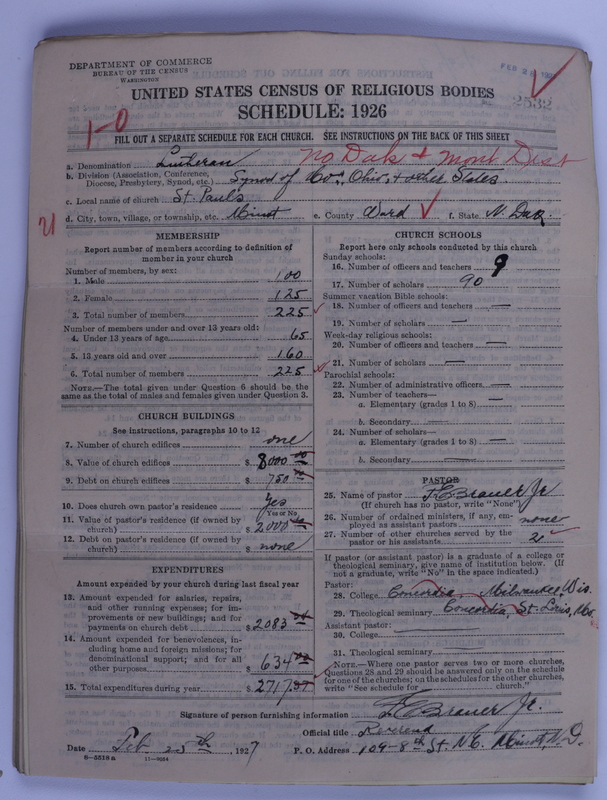 DEPARTMENT OF COMMERCE
BUREAU OF THE CENSUS
WASHINGTON
FEB 2
2532
UNITED STATES CENSUS OF RELIGIOUS BODIES
SCHEDULE: 1926
1-0
FILL OUT A SEPARATE SCHEDULE FOR EACH CHURCH. SEE INSTRUCTIONS ON THE BACK OF THIS SHEET
No Dak & Mont Dist
a. Denomination Lutheran
b. Division (Association, Conference, Diocese, Presbytery, Synod, etc.) Synod of Mo., Ohio, & other States
c. Local name of church St. Paul's
d. City, town, village, or township, etc. Minot e. County Ward f. State N. Dak.
MEMBERSHIP
Report number of members according to definition of
member in your church
Number of members, by sex:
1. Male 100
2. Female 125
3. Total number of members 225
Number of members under and over 13 years old:
4. Under 13 years of age 65
5. 13 years old and over 160
6. Total number of members 225
NOTE.—The total given under Question 6 should be the
same as the total of males and females given under Question 3.
CHURCH BUILDINGS
See instructions, paragraphs 10 to 12
7. Number of church edifices one
8. Value of church edifices $ 8000 00
9. Debt on church edifices $ 750 00
10. Does church own pastor's residence? Yes
Yes or No
11. Value of pastor's residence (if owned by
church) $ 2000 00
12. Debt on pastor's residence (if owned by
church) $ none
EXPENDITURES
Amount expended by your church during last fiscal year
13. Amount expended for salaries, repairs,
and other running expenses; for im-
provements or new buildings; and for
payments on church debt $ 2083
14. Amount expended for benevolences, in-
cluding home and foreign missions; for
denominational support; and for all
other purposes $ 634
15. Total expenditures during year $ 2717
CHURCH SCHOOLS
Report here only schools conducted by this church
Sunday schools:
16. Number of officers and teachers 9
17. Number of scholars 90
Summer vacation Bible schools:
18. Number of officers and teachers —
19. Number of scholars —
Week-day religious schools:
20. Number of officers and teachers —
21. Number of scholars —
Parochial schools:
22. Number of administrative officers —
23. Number of teachers—
a. Elementary (grades 1 to 8) —
b. Secondary —
24. Number of scholars—
a. Elementary (grades 1 to 8) —
b. Secondary —
PASTOR
25. Name of pastor F. E. Brauer Jr
(If church has no pastor, write "None")
26. Number of ordained ministers, if any, em-
ployed as assistant pastors none
27. Number of other churches served by the
pastor or his assistants
If pastor (or assistant pastor) is a graduate of a college or
theological seminary, give name of institution below. (If
not a graduate, write "No" in the space indicated.)
Pastor:
28. College Concordia, Milwaukee, Wis.
29. Theological seminary Concordia, St. Louis, Mo.
Assistant pastor:
30. College
31. Theological seminary
NOTE.—Where one pastor serves two or more churches,
Questions 28 and 29 should be answered only on the schedule
for one of the churches; on the schedules for the other churches,
write "See schedule for church."
Signature of person furnishing information F. E. Brauer Jr.
Official title Reverend
Date Feb. 25th 1927 P. O. Address 109-8th St. N.E. Minot, N.D.
8-5518a 11-9054